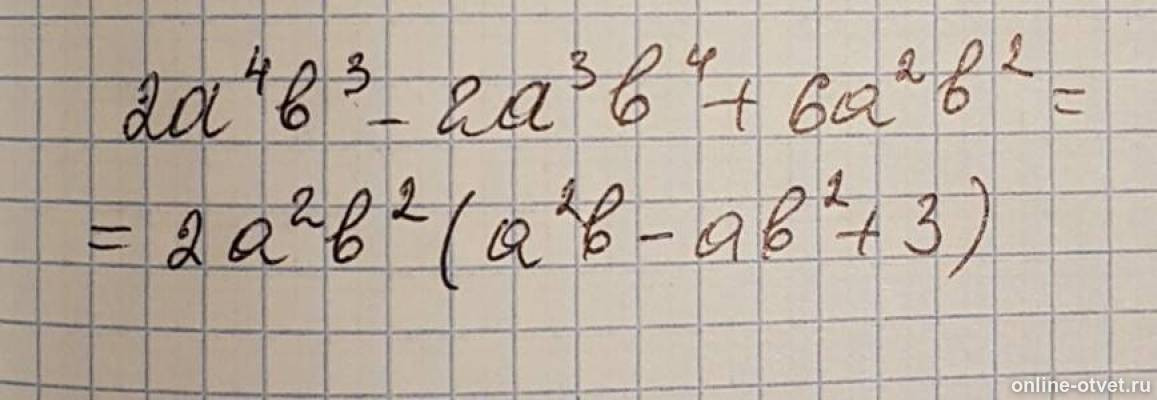 2a⁴b³ - 2a³b⁴ + 6a²b² =
= 2a²b² (a²b - ab² + 3)
online-otvet.ru